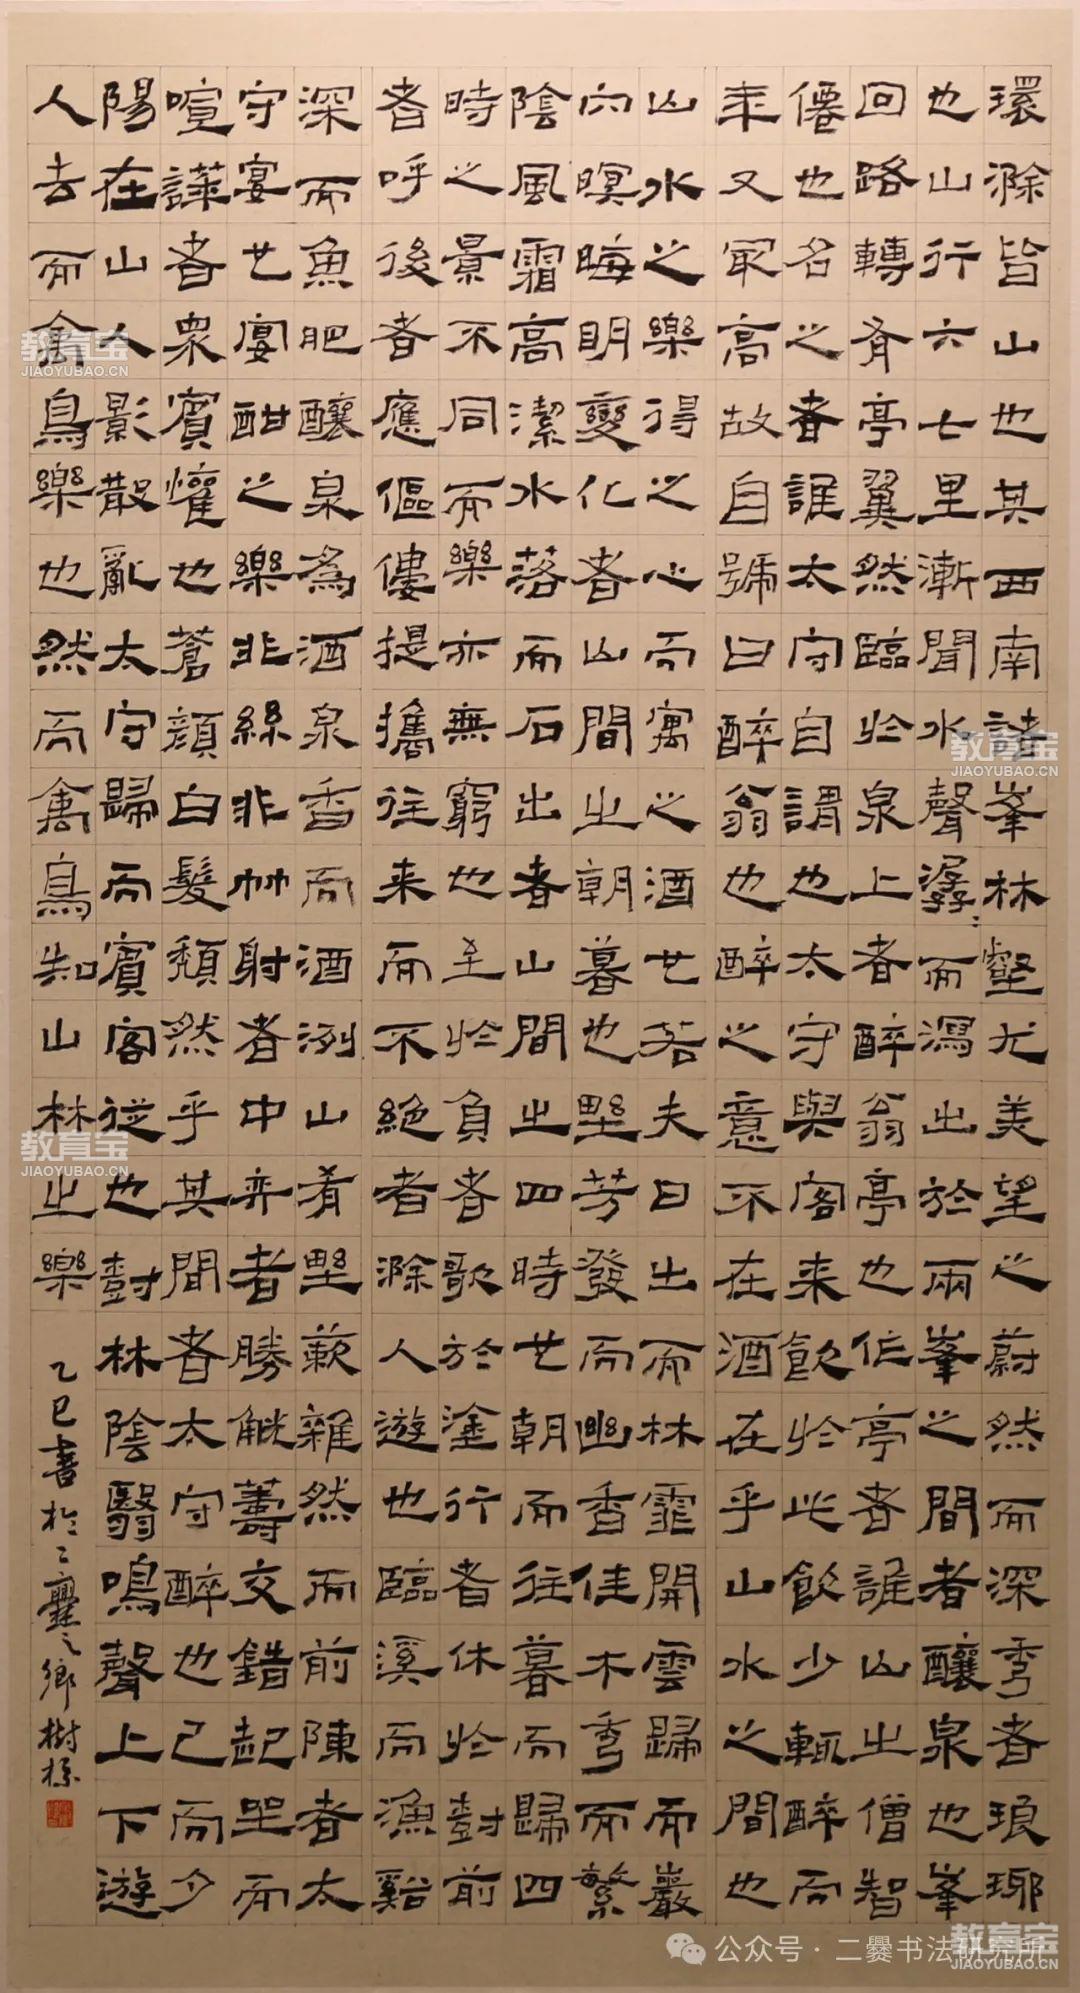 環滁皆山也其西南諸峯林壑尤美望之蔚然而深秀者琅琊
也山行六七里漸聞水聲潺〻而瀉出於兩峯之間者釀泉也峯
回路轉有亭翼然臨於泉上者醉翁亭也作亭者誰山之僧智
僊也名之者誰太守自謂也太守與客来飲於此飲少輒醉而
年又最高故自號曰醉翁也醉之意不在酒在乎山水之間也
山水之樂得之心而寓之酒也若夫日出而林霏開雲歸而巖
穴暝晦明變化者山間之朝暮也野芳發而幽香佳木秀而繁
陰風霜高潔水落而石出者山間之四時也朝而往暮而歸四
時之景不同而樂亦無窮也至於負者歌於塗行者休於樹前
者呼後者應傴僂提攜往来而不絶者滁人遊也臨溪而漁谿
深而魚肥釀泉為酒泉香而酒洌山肴野蔌雜然而前陳者太
守宴也宴酣之樂非絲非竹射者中弈者勝觥籌交錯起坐而
喧譁者衆賓懽也蒼顏白髮頹然乎其間者太守醉也已而夕
陽在山人影散亂太守歸而賓客從也樹林陰翳鳴聲上下遊
人去而禽鳥樂也然而禽鳥知山林之樂
乙巳書於二爨之鄉樹
教育宝
JIAOYUBAO.CN
教育宝
JIAOYUBAO.CN
教育宝
JIAOYUBAO.CN
教育宝
JIAOYUBAO.CN
公众号·二爨书法研究所